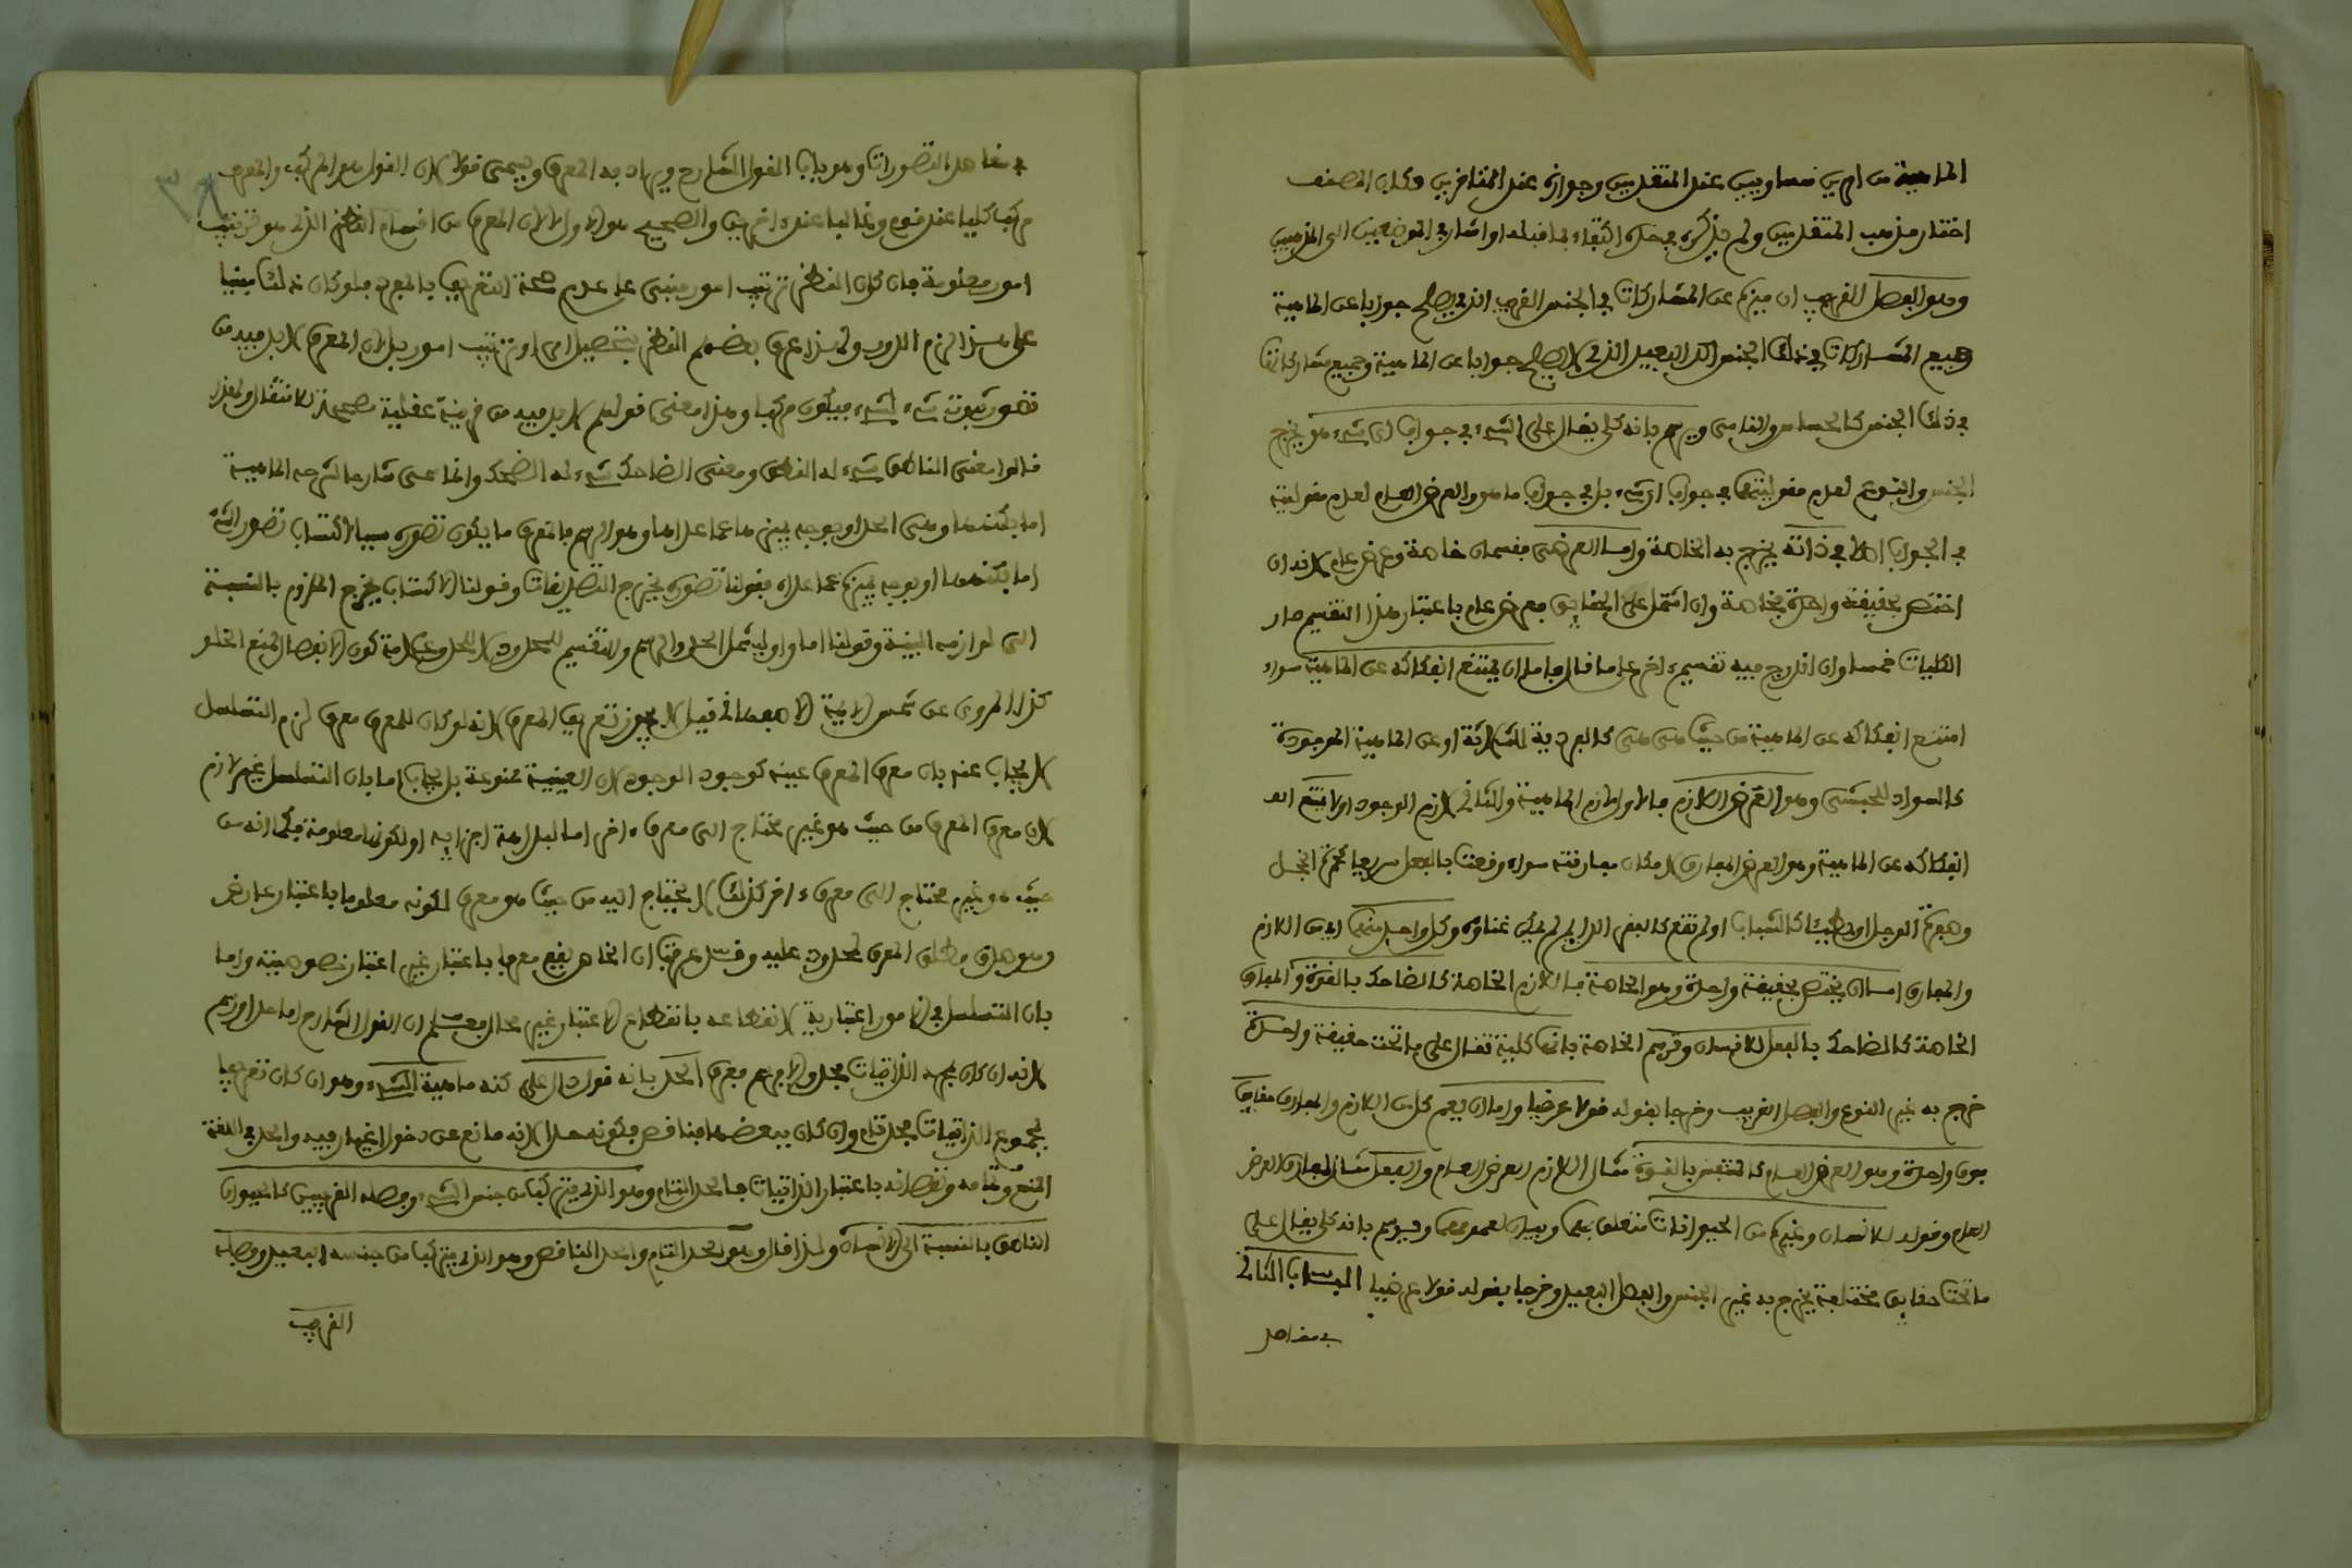 الماهية من امرين متساويين عند المتقدمين وجوازه عند المتاخرين وكان المصنف
اختار مذهب المتقدمين ولم يذكره في حده اكتفاء بما قبله او اشار في الموضعين الى المذهبين
وهو الفصل القريب ان ميزه عن المشاركات في الجنس القريب الذي يصلح جوابا عن الماهية
وجميع المشاركات في ذلك الجنس البعيد الذي لا يصلح جوابا عن الماهية وجميع مشاركاتها
في ذلك الجنس كالحساس والنامي ويرسم بانه كلي يقال على الشيء في جواب اي شيء هو يخرج
الجنس والنوع لعدم مقوليتهما في جواب اي شيء بل في جواب ما هو والعرض العام لعدم مقوليته
في الجواب اصلا في ذاته يخرج به الخاصة واما العرضي فقسمان خاصة وعرض عام لانه ان
اختص بحقيقة واحدة بخاصة وان اشتمل على الحقايق فعرض عام باعتبار هذا التقسيم صار
الكليات خمسا وان اندرج فيه تقسيم اخر على ما قال فاما ان يمتنع انفكاكه عن الماهية سواء
امتنع انفكاكه عن الماهية من حيث هي هي كالفردية للثلاثة او عن الماهية الموجودة
كالسواد للحبشي وهو العرض اللازم فالاول لازم الماهية والثاني لازم الوجود او لا يمتنع انفـ
انفكاكه عن الماهية وهو العرض المفارق لامكان مفارقته سواء وقعت بالفعل سريعا كحمرة الخجل
وصفرة الوجل او بطيئا كالشباب او لم تقع كالفقر الدايم لم يمكن غناؤه وكل واحد منهما اي من اللازم
والمفارق اما ان يختص بحقيقة واحدة وهو الخاصة فاللازم الخاصة كالضاحك بالقوة والمفارق
الخاصة كالضاحك بالفعل للانسان وترسم الخاصة بانها كلية تقال على ما تحت حقيقة واحدة
خرج به غير النوع والفصل القريب وخرجا بقوله قولا عرضيا واما ان يعم كل من اللازم والمفارق حقايق
فوق واحدة وهو العرض العام كالمتنفس بالقوة مثال اللازم العرض العام وبالفعل مثال المفارق العرض
العام وقوله للانسان وغيره من الحيوانات متعلق بهما وبيان لعمومهما ويرسم بانه كلي يقال على
ما تحت حقايق مختلفة يخرج به غير الجنس والفصل البعيد وخرجا بقوله قولا عرضيا الباب الثاني
في مقاصد
مقاصد التصورات وهو باب القول الشارح ويراد به المعرف ويسمى قولا لان القول هو المركب والمعرف
مركب كليا عند قوم وغالبا عند اخرين والصحيح هو الاول لان المعرف من اقسام النظر الذي هو ترتيب
امور معلومة فان كان النظر ترتيب امور مبني على عدم صحة التعريف بالمفرد فلو كان ذلك مبنيا
على هذا لزم الدور ولهذا عرف بعضهم النظر بتحصيل امر او ترتيب امور بل لان المعرف لا بد فيه من
تصور ثبوت شيء لشيء فيكون مركبا وهذا معنى قولهم لا بد فيه من قرينة عقلية مصححة للانتقال ولهذا
قالوا معنى الناطق شيء له النطق ومعنى الضاحك شيء له الضحك وانما سمي شارحا لشرحه الماهية
اما بكنهها وهي الحد او بوجه يميزها عما عداها وهو الرسم فالمعرف ما يكون تصوره سببا لاكتساب تصور الشيء
اما بكنهها او بوجه يميزه عما عداه فقولنا تصوره يخرج التصديقات وقولنا الاكتساب يخرج الملزوم بالنسبة
الى لوازمه البينة وقولنا اما واو ليشمل الحد والرسم وللتقسيم للمحدود لا للحد وعلامة كون الانفصال لمنع الخلو
كذا المروي عن شمس الايمة الاصفهاني قيل لا يجوز تعريف المعرف لانه لو كان للمعرف معرف لزم التسلسل
لا يجاب عنه بان معرف المعرف عينه كوجود الوجود لان العينية ممنوعة بل يجاب اما بان التسلسل غير لازم
لان معرف المعرف من حيث هو غير محتاج الى معرف اخر اما لبداهة اجزايه او لكونها معلومة فكما انه من
حيث هو غير محتاج الى معرف اخر كذلك لا يحتاج اليه من حيث هو معرف لكونه معلوما باعتبار عارض
وهو صدق مطلق المعرف المحدود عليه وقد عرفت ان الخاص يقع معرفا باعتبار غير اعتبار خصوصيته واما
بان التسلسل في الامور اعتبارية لانقطاعه بانقطاع الاعتبار غير محال فعلم ان القول الشارح اما حد او رسم
لانه ان كان بمجرد الذاتيات فحد والا فرسم فعرف الحد بانه قول دال على كنه ماهية الشيء وهو ان كان تعريفا
بجموع الذاتيات فحد تام وان كان ببعضها فناقص فكونه حدا لانه مانع عن دخول اغيار فيه والحد في اللغة
المنع وتمامه ونقصانه باعتبار الذاتيات فالحد التام وهو الذي يتركب من جنس الشيء وفصله القريبين كالحيوان
الناطق بالنسبة الى الانسان ولهذا قال وهو الحد التام والحد الناقص وهو الذي يتركب من جنسه البعيد وفصله
القريب